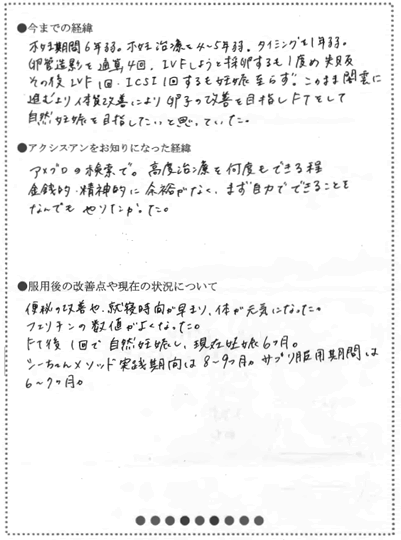 ●今までの経緯
不妊期間6年弱。不妊治療を4~5年弱。タイミングを1年弱。
卵管造影を通算4回。IVFしようと採卵するも1度め失敗
その後IVF1回、ICSI1回するも妊娠至らず。このまま闇雲に
進むより体質改善により卵子の改善を目指しFTとして
自然妊娠を目指したいと思っていた。
●アクシスアンをお知りになった経緯
アメブロの検索で。高度治療を何度もできる程
金銭的・精神的に余裕がなく、まず自力でできることを
なんでもやりたかった。
●服用後の改善点や現在の状況について
便秘の改善や、就寝時間が早まり、体が元気になった。
フェリチンの数値がよくなった。
FT後1回で自然妊娠し、現在妊娠6ヶ月。
シーちゃんメソッド実践期間は8~9ヶ月。サプリ服用期間は
6~7ヶ月。